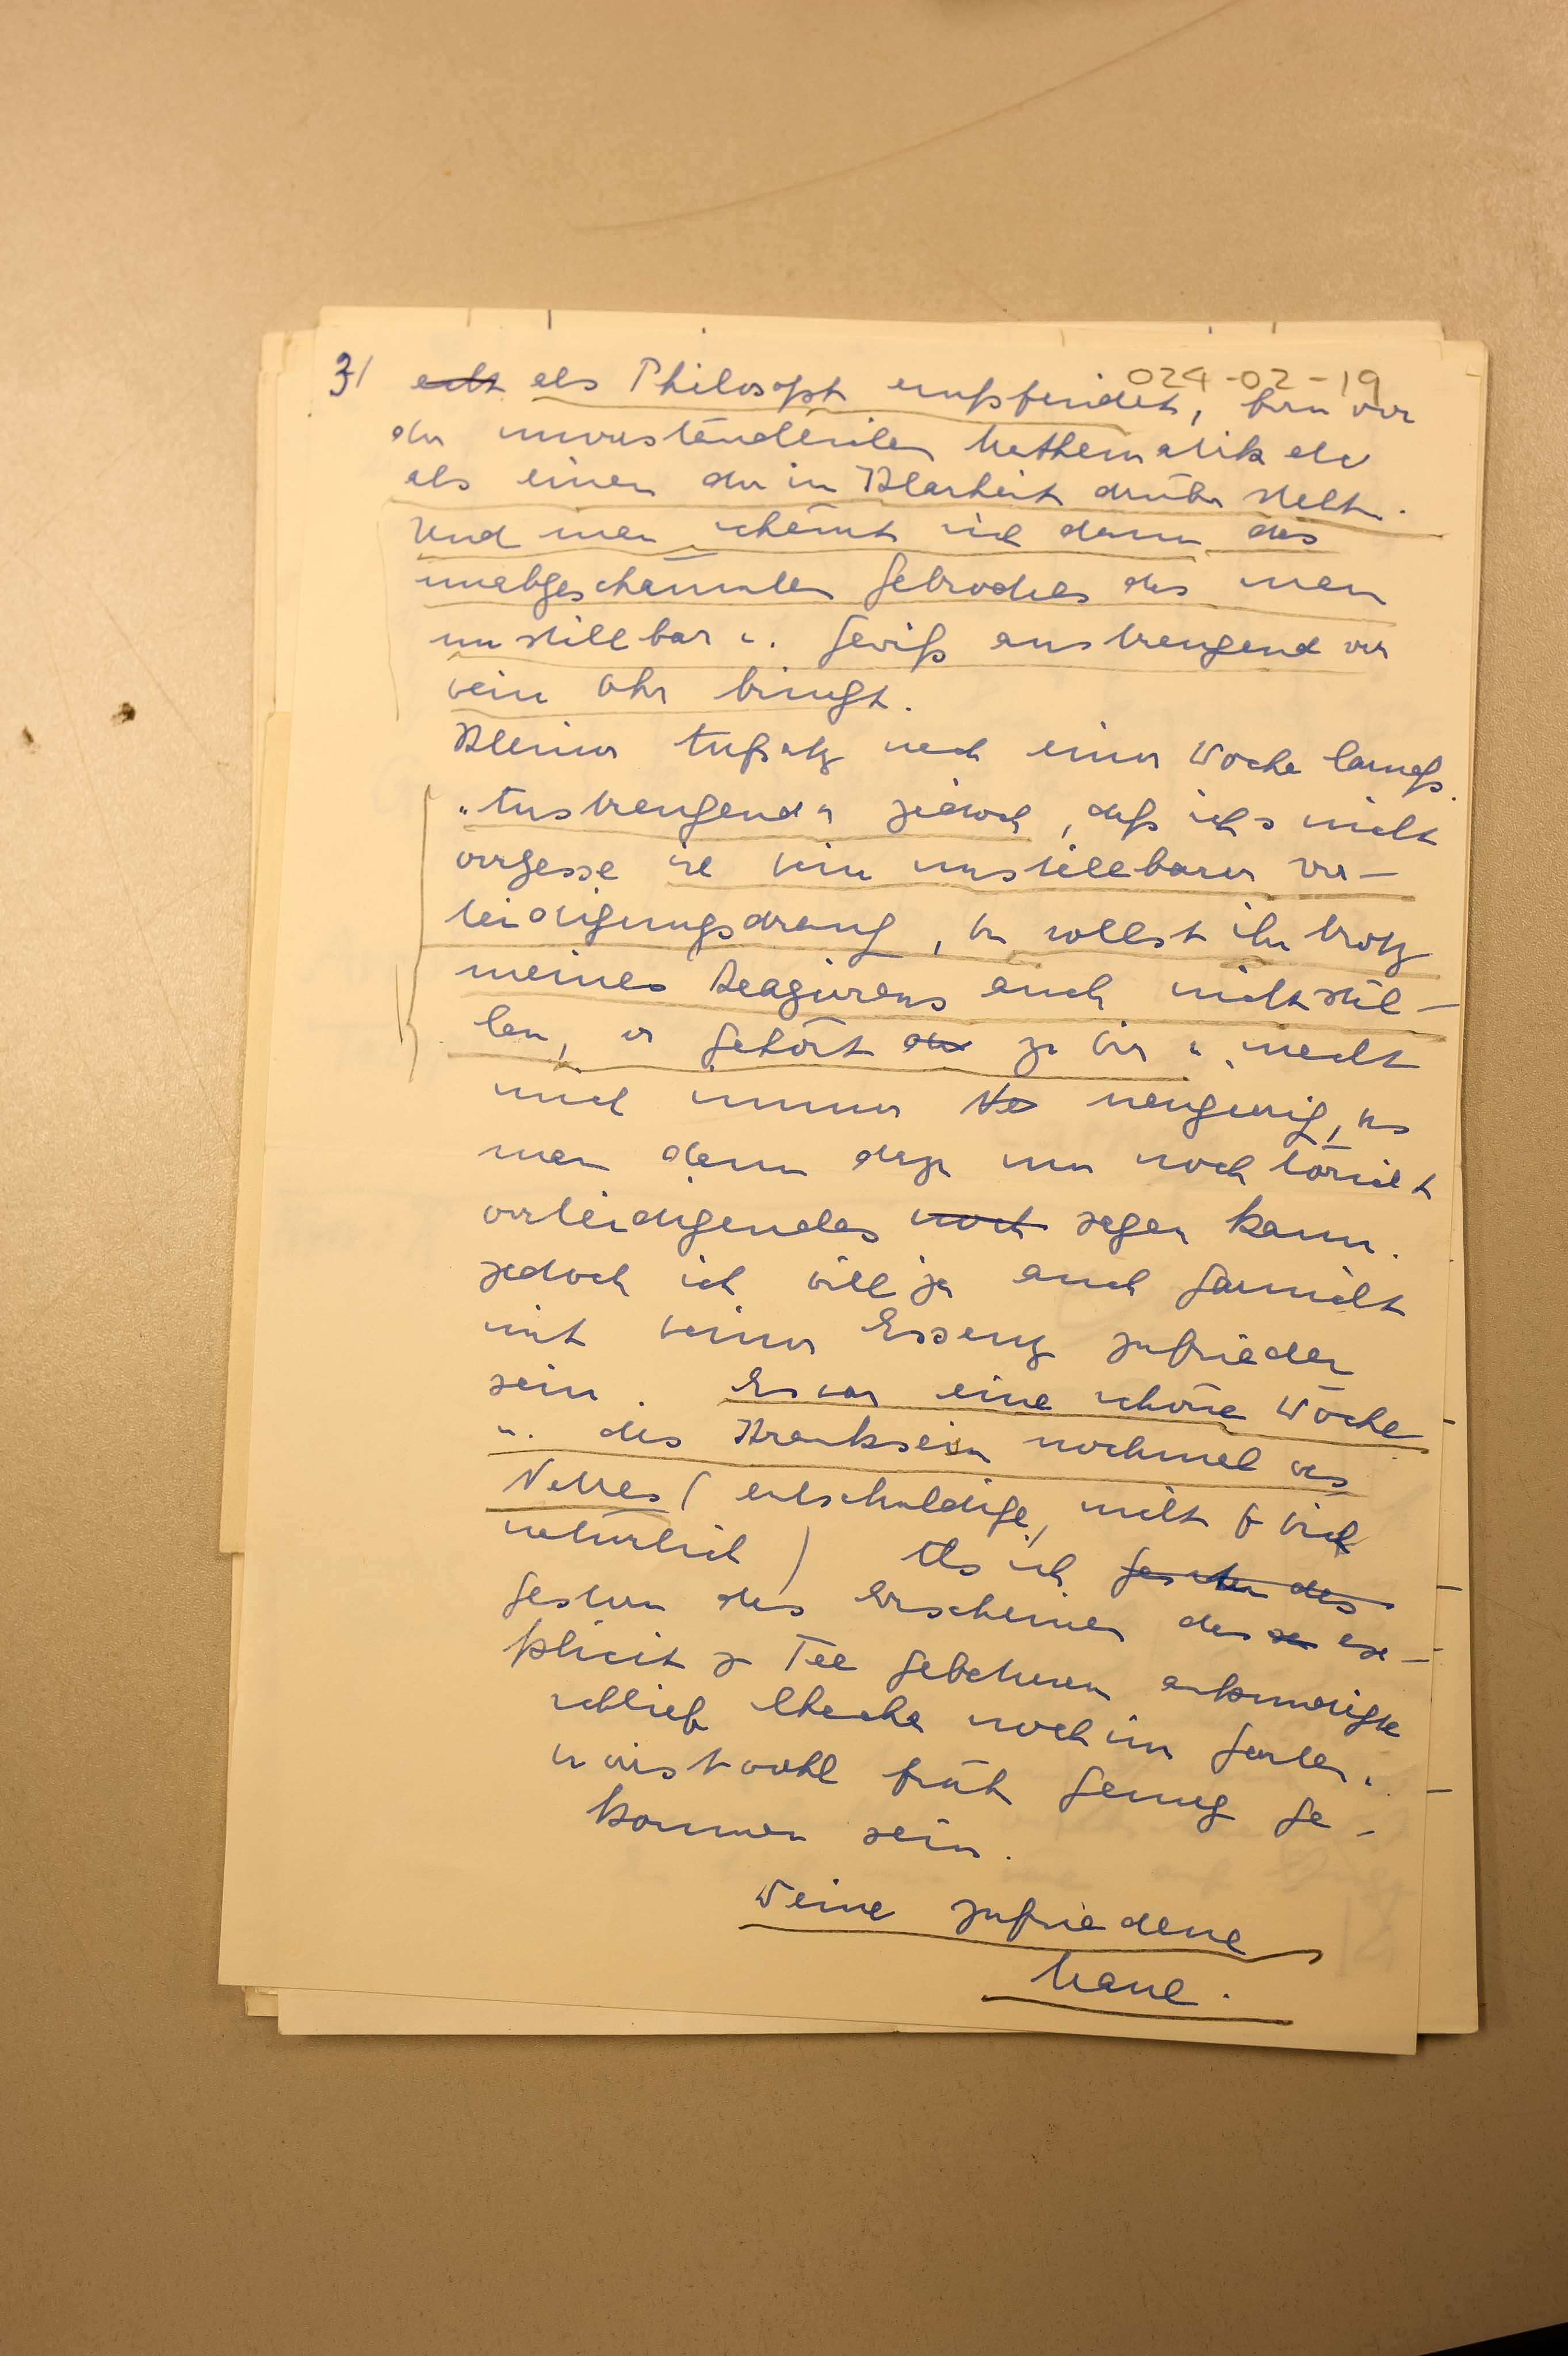 024-02-19
3/ echt als Philosoph empfindet, bzw vor
der unverständlichen Mathematik etc
als einen der in Klarheit drüber steht.
Und man schämt sich dann des
unabgeschäumten Gebrodels das man
unstillbar u. gewiß anstrengend vor
Dein Ohr bringt.
Kleiner Aufsatz nach einer Woche
"Anstrengend" jedoch, daß ich's nicht
vergesse ist Dein unstillbarer Ver-
teidigungsdrang, Du sollst ihn trotz
meines Reagierens auch nicht stil-
len, er gehört zu Dir u. macht
mich immer neugierig, was
man denn dazu nun noch
verteidigendes noch sagen kann.
jedoch ich will ja auch garnicht
mit Deiner Essenz zufrieden
sein. Es war eine schöne Woche
u. das Kranksein nochmal was
Nettes (entschuldige, nicht f. Dich
natürlich) Als ich gestern das
gestern das Erscheinen des ex-
plicit z Tee gebetenen ankündigte
schlief noch im Garten u.
wirst wohl früh genug ge-
kommen sein.
Deine zufriedene
Maue.